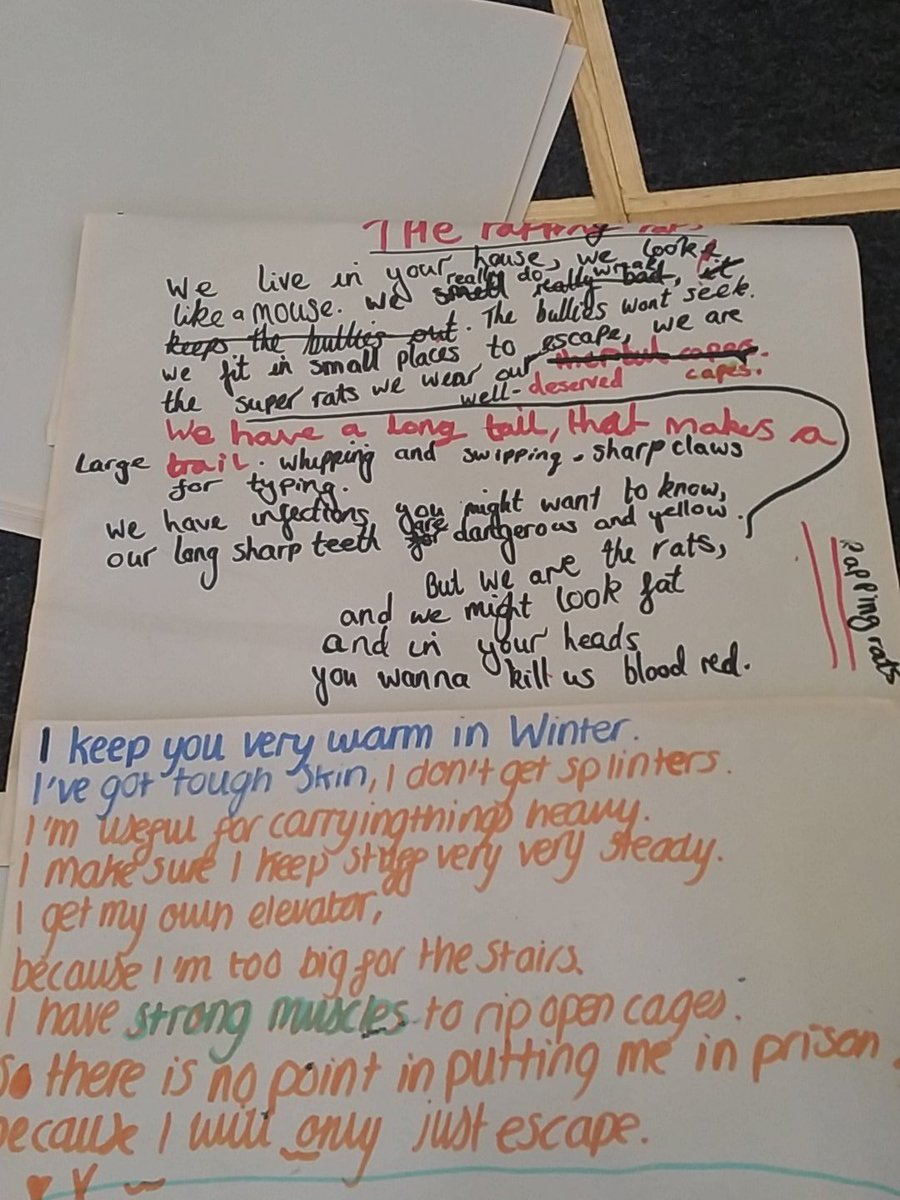 THE rapping rats
We live in your house, we look
like a mouse. We really do wreak, it
keeps the bullies out. The bullies wont seek.
we fit in small places to escape, we are
the super rats we wear our well-deserved capes.
We have a long tail, that makes a
Large trail. whipping and swipping. sharp claws
for typing.
we have infections you might want to know,
our long sharp teeth are dangerous and yellow.
But we are the rats,
and we might look fat
and in your heads
you wanna kill us blood red.
Rapping rats
I keep you very warm in Winter.
I've got tough skin, I don't get splinters.
I'm useful for carrying things heavy.
I make sure I keep stuff very very steady.
I get my own elevator,
because I'm too big for the stairs.
I have strong muscles to rip open cages.
So there is no point in putting me in prison.
because I will only just escape.